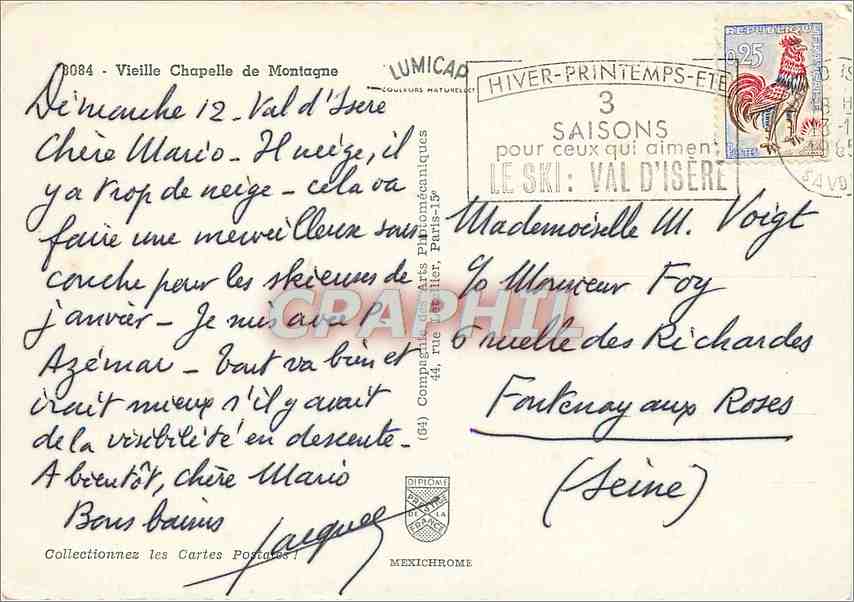 8084 - Vieille Chapelle de Montagne
Dimanche 12 - Val d'Isere
Chère Mario - Il neige, il
y a trop de neige - cela va
faire une merveilleuse sous
couche pour les skieuses de
janvier - Je suis avec P.
Azémar - Tout va bien et
irait mieux s'il y avait
de la visibilité en descente -
A bientôt, chère Mario
Bons baisers
Jacques
Collectionnez les Cartes Postales !
LUMICAP
COULEURS NATURELLES
(64) Compagnie des Arts Photomécaniques
44, rue Letellier, Paris-15e
DIPLOME
PRESTIGE
DE LA
FRANCE
MEXICHROME
HIVER-PRINTEMPS-ETE
3
SAISONS
pour ceux qui aiment
LE SKI : VAL D'ISÈRE
REPUBLIQUE FRANCAISE
0,25
POSTES
SAVO
Mademoiselle M. Voigt
c/o Monsieur Foy
6 ruelle des Richardes
Fontenay aux Roses
(Seine)
CPARPHIL